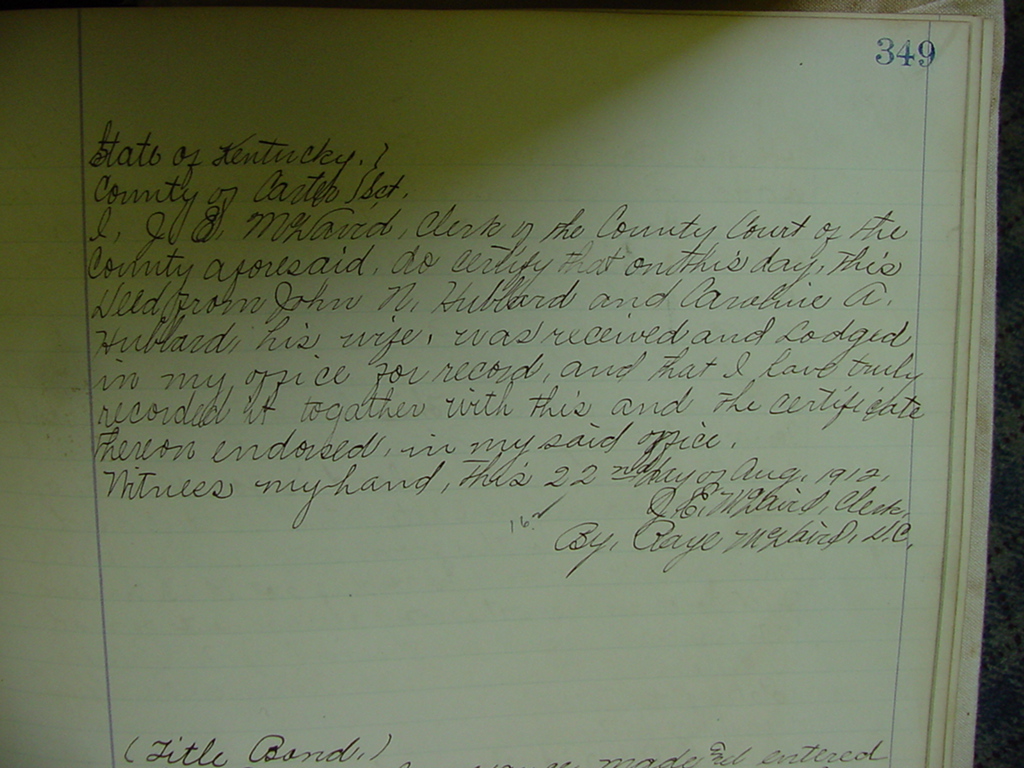 349
State of Kentucky. }
County of Carter } Sct.
I, J. E. McDavid, Clerk of the County Court of the
County aforesaid, do certify that on this day, this
Deed from John N. Hubbard and Caroline A.
Hubbard, his wife, was received and Lodged
in my office for record, and that I have truly
recorded it togather with this and the certificate
thereon endorsed, in my said office.
Witness my hand, this 22nd day of Aug. 1912.
J. E. McDavid, Clerk,
By, Raye McDavid, D.C.
(Title Bond,)
made and entered